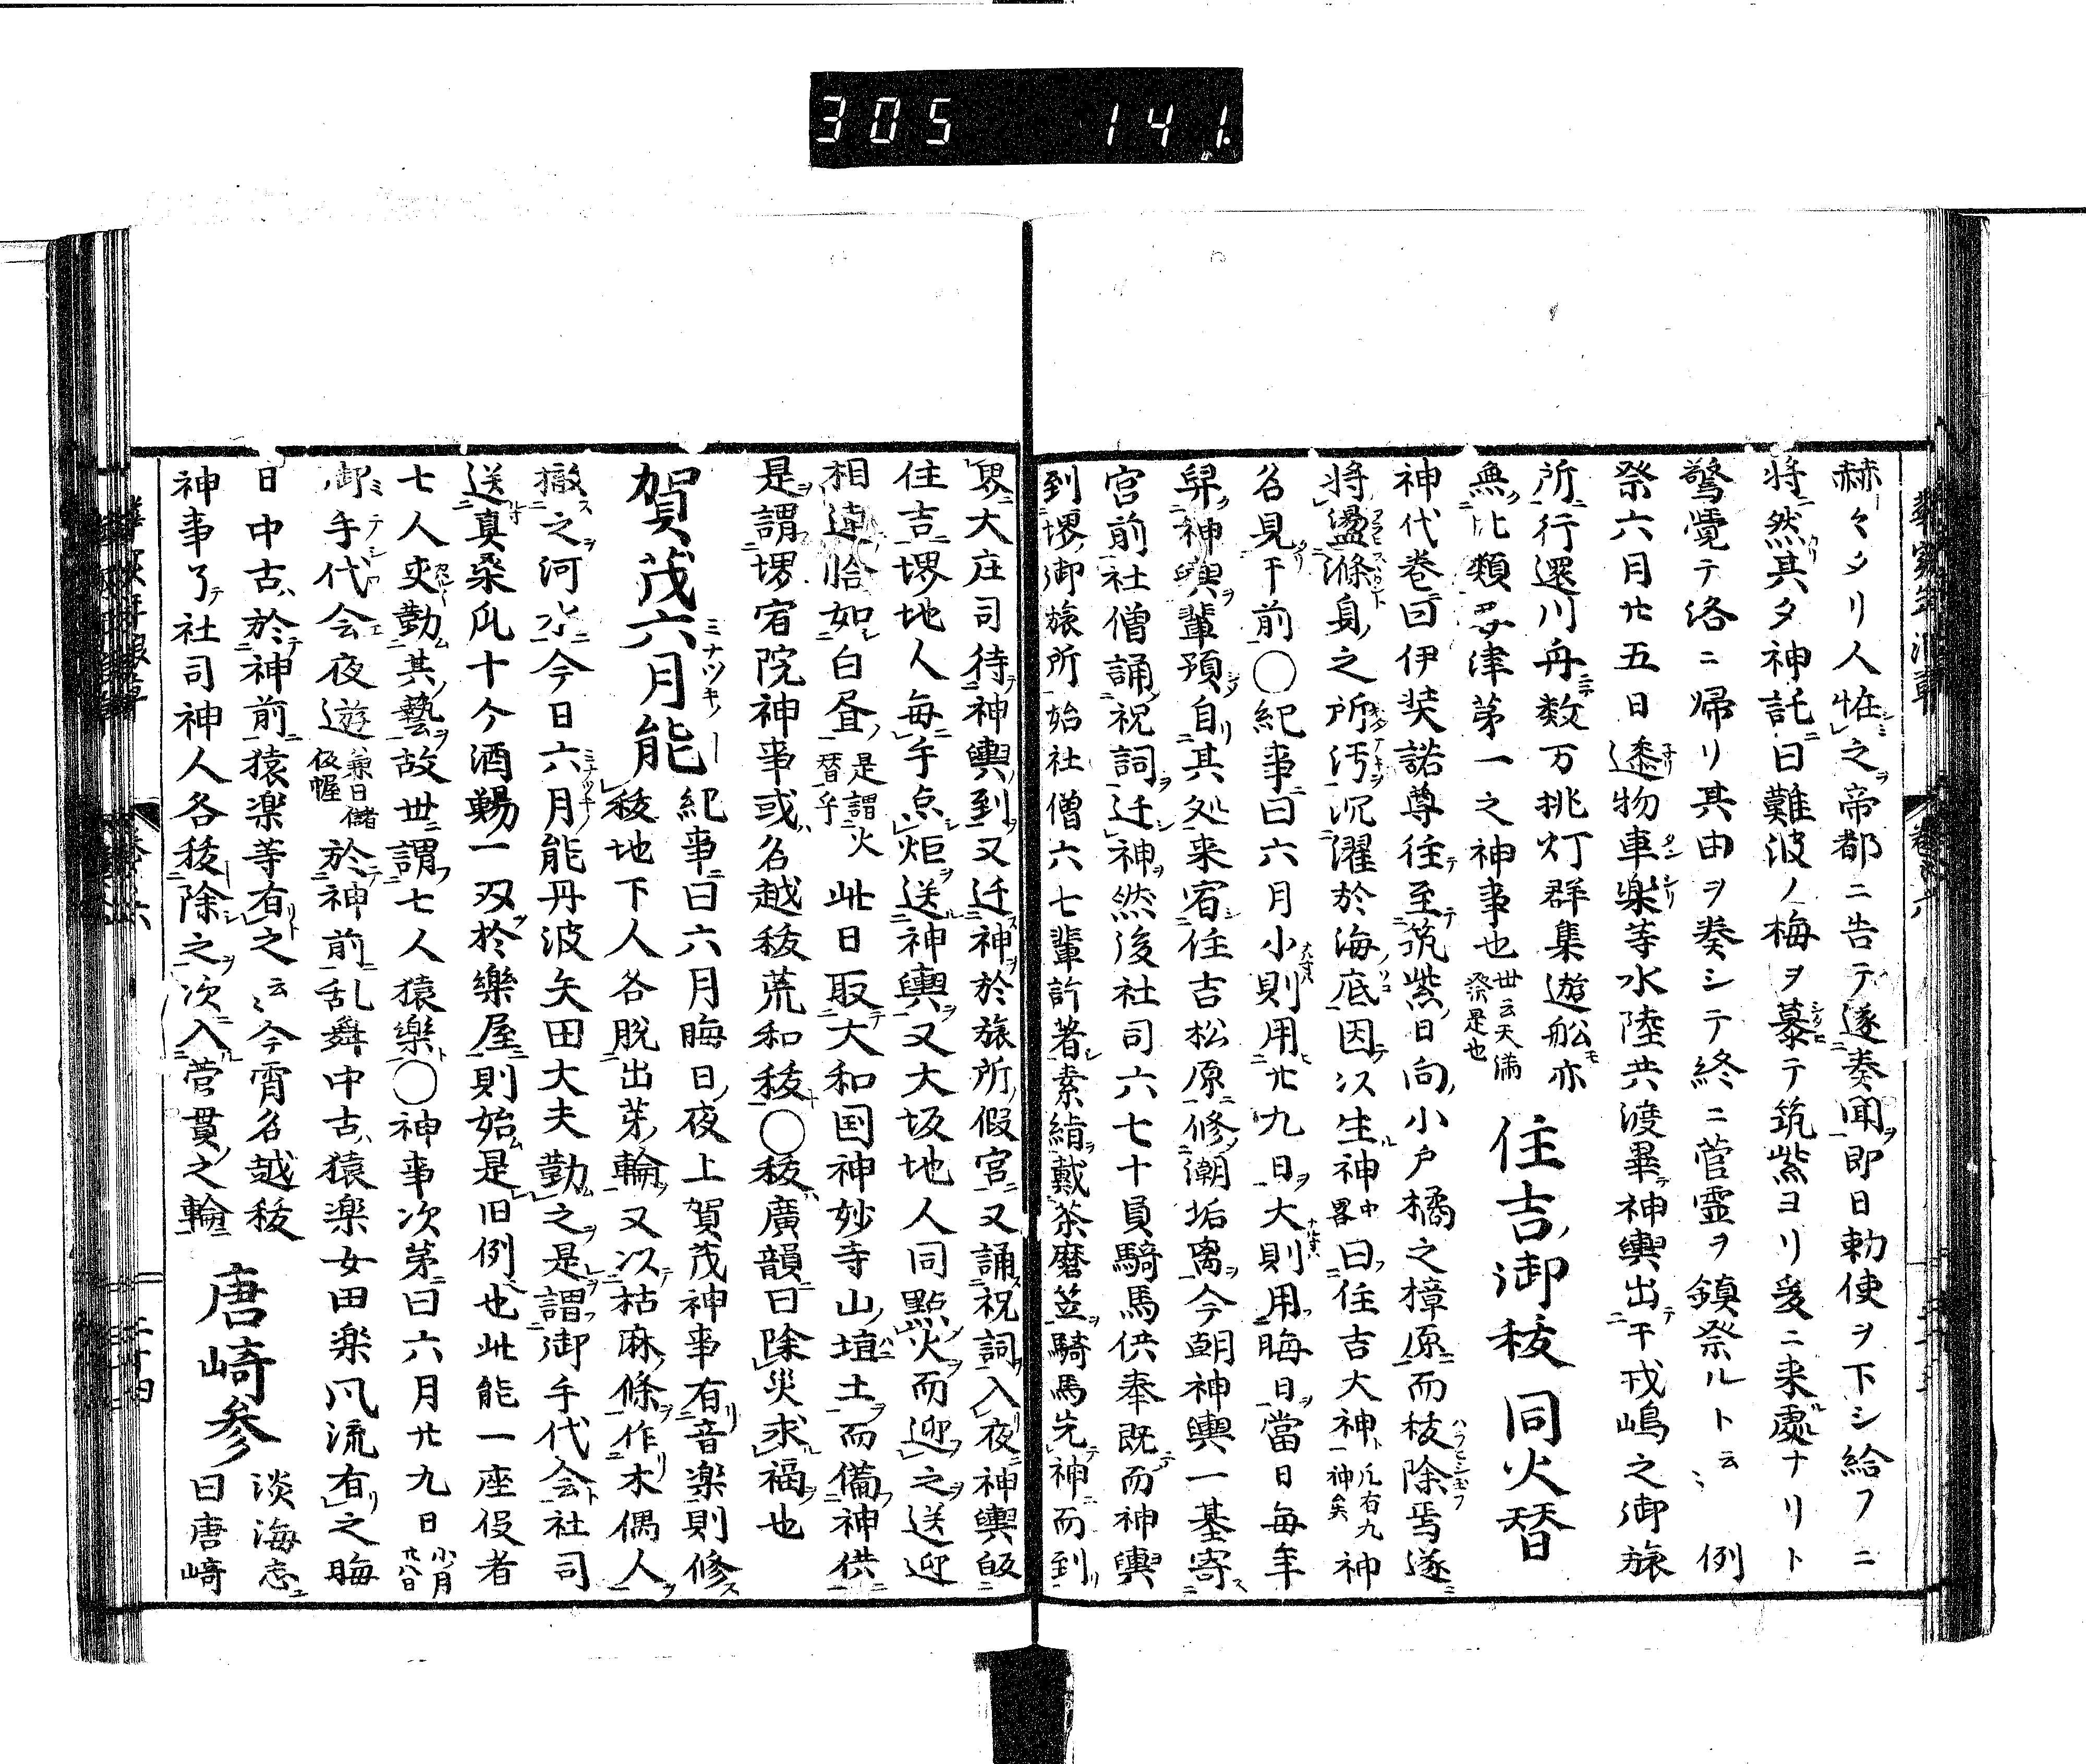 305 141
赫々タリ人恠之帝都ニ告テ遂奏聞即日勅使ヲ下シ給フニ
将然其夕神託曰難波ノ梅ヲ慕テ筑紫ヨリ爰ニ来處ナリト
驚覺テ洛ニ帰リ其由ヲ奏シテ終ニ菅霊ヲ鎮祭ルト云々 例
祭六月廿五日邌物車楽等水陸共渡畢神輿出于戎嶋之御旅
所行還川舟数万挑灯群集遊舩亦
無比類津第一之神事也世云天満祭是也 住吉御秡 同火替
神代巻曰伊弉諾尊徃至筑紫日向小戸橘之檍原而秡除焉遂
将盪滌身之所汚沉濯於海底因以生神中畧曰住吉大神凢有九神矣神
名見于前〇紀事曰六月小則用廿九日大則用晦日當日毎年
舁神輿輩預自其处来宿住吉松原修潮垢离今朝神輿一基寄
宮前社僧誦祝詞迁神然後社司六七十員騎馬供奉既而神輿
到堺御旅所始社僧六七輩許著素絹戴茶磨笠騎馬先神而到
堺大庄司待神輿到又迁神於旅所假宮又誦祝詞入夜神輿皈
住吉堺地人毎手点炬送神輿又大坂地人同點火而迎之送迎
相連恰如白昼是謂火替乎此日取大和国神妙寺山埴土而備神供
是謂堺宿院神事或名越秡荒和秡〇秡廣韻曰除災求福也
賀茂六月能 紀事曰六月晦日夜上賀茂神事有音楽則修
秡地下人各脱出茅輪又以枯麻條作木偶人
撤之河水今日六月能丹波矢田大夫勤之是謂御手代会社司
送真桒瓜十ケ酒鶏一双於樂屋則始是旧例也此能一座役者
七人更勤其藝故世謂七人猿樂〇神事次第曰六月廿九日小月廿八日
御手代会夜遊兼日儲仮幄於神前乱舞中古猿楽女田楽風流有之晦
日中古於神前猿楽等有之云々今宵名越秡
神事了社司神人各秡除之次入菅貫之輪 唐崎参 淡海志曰唐崎